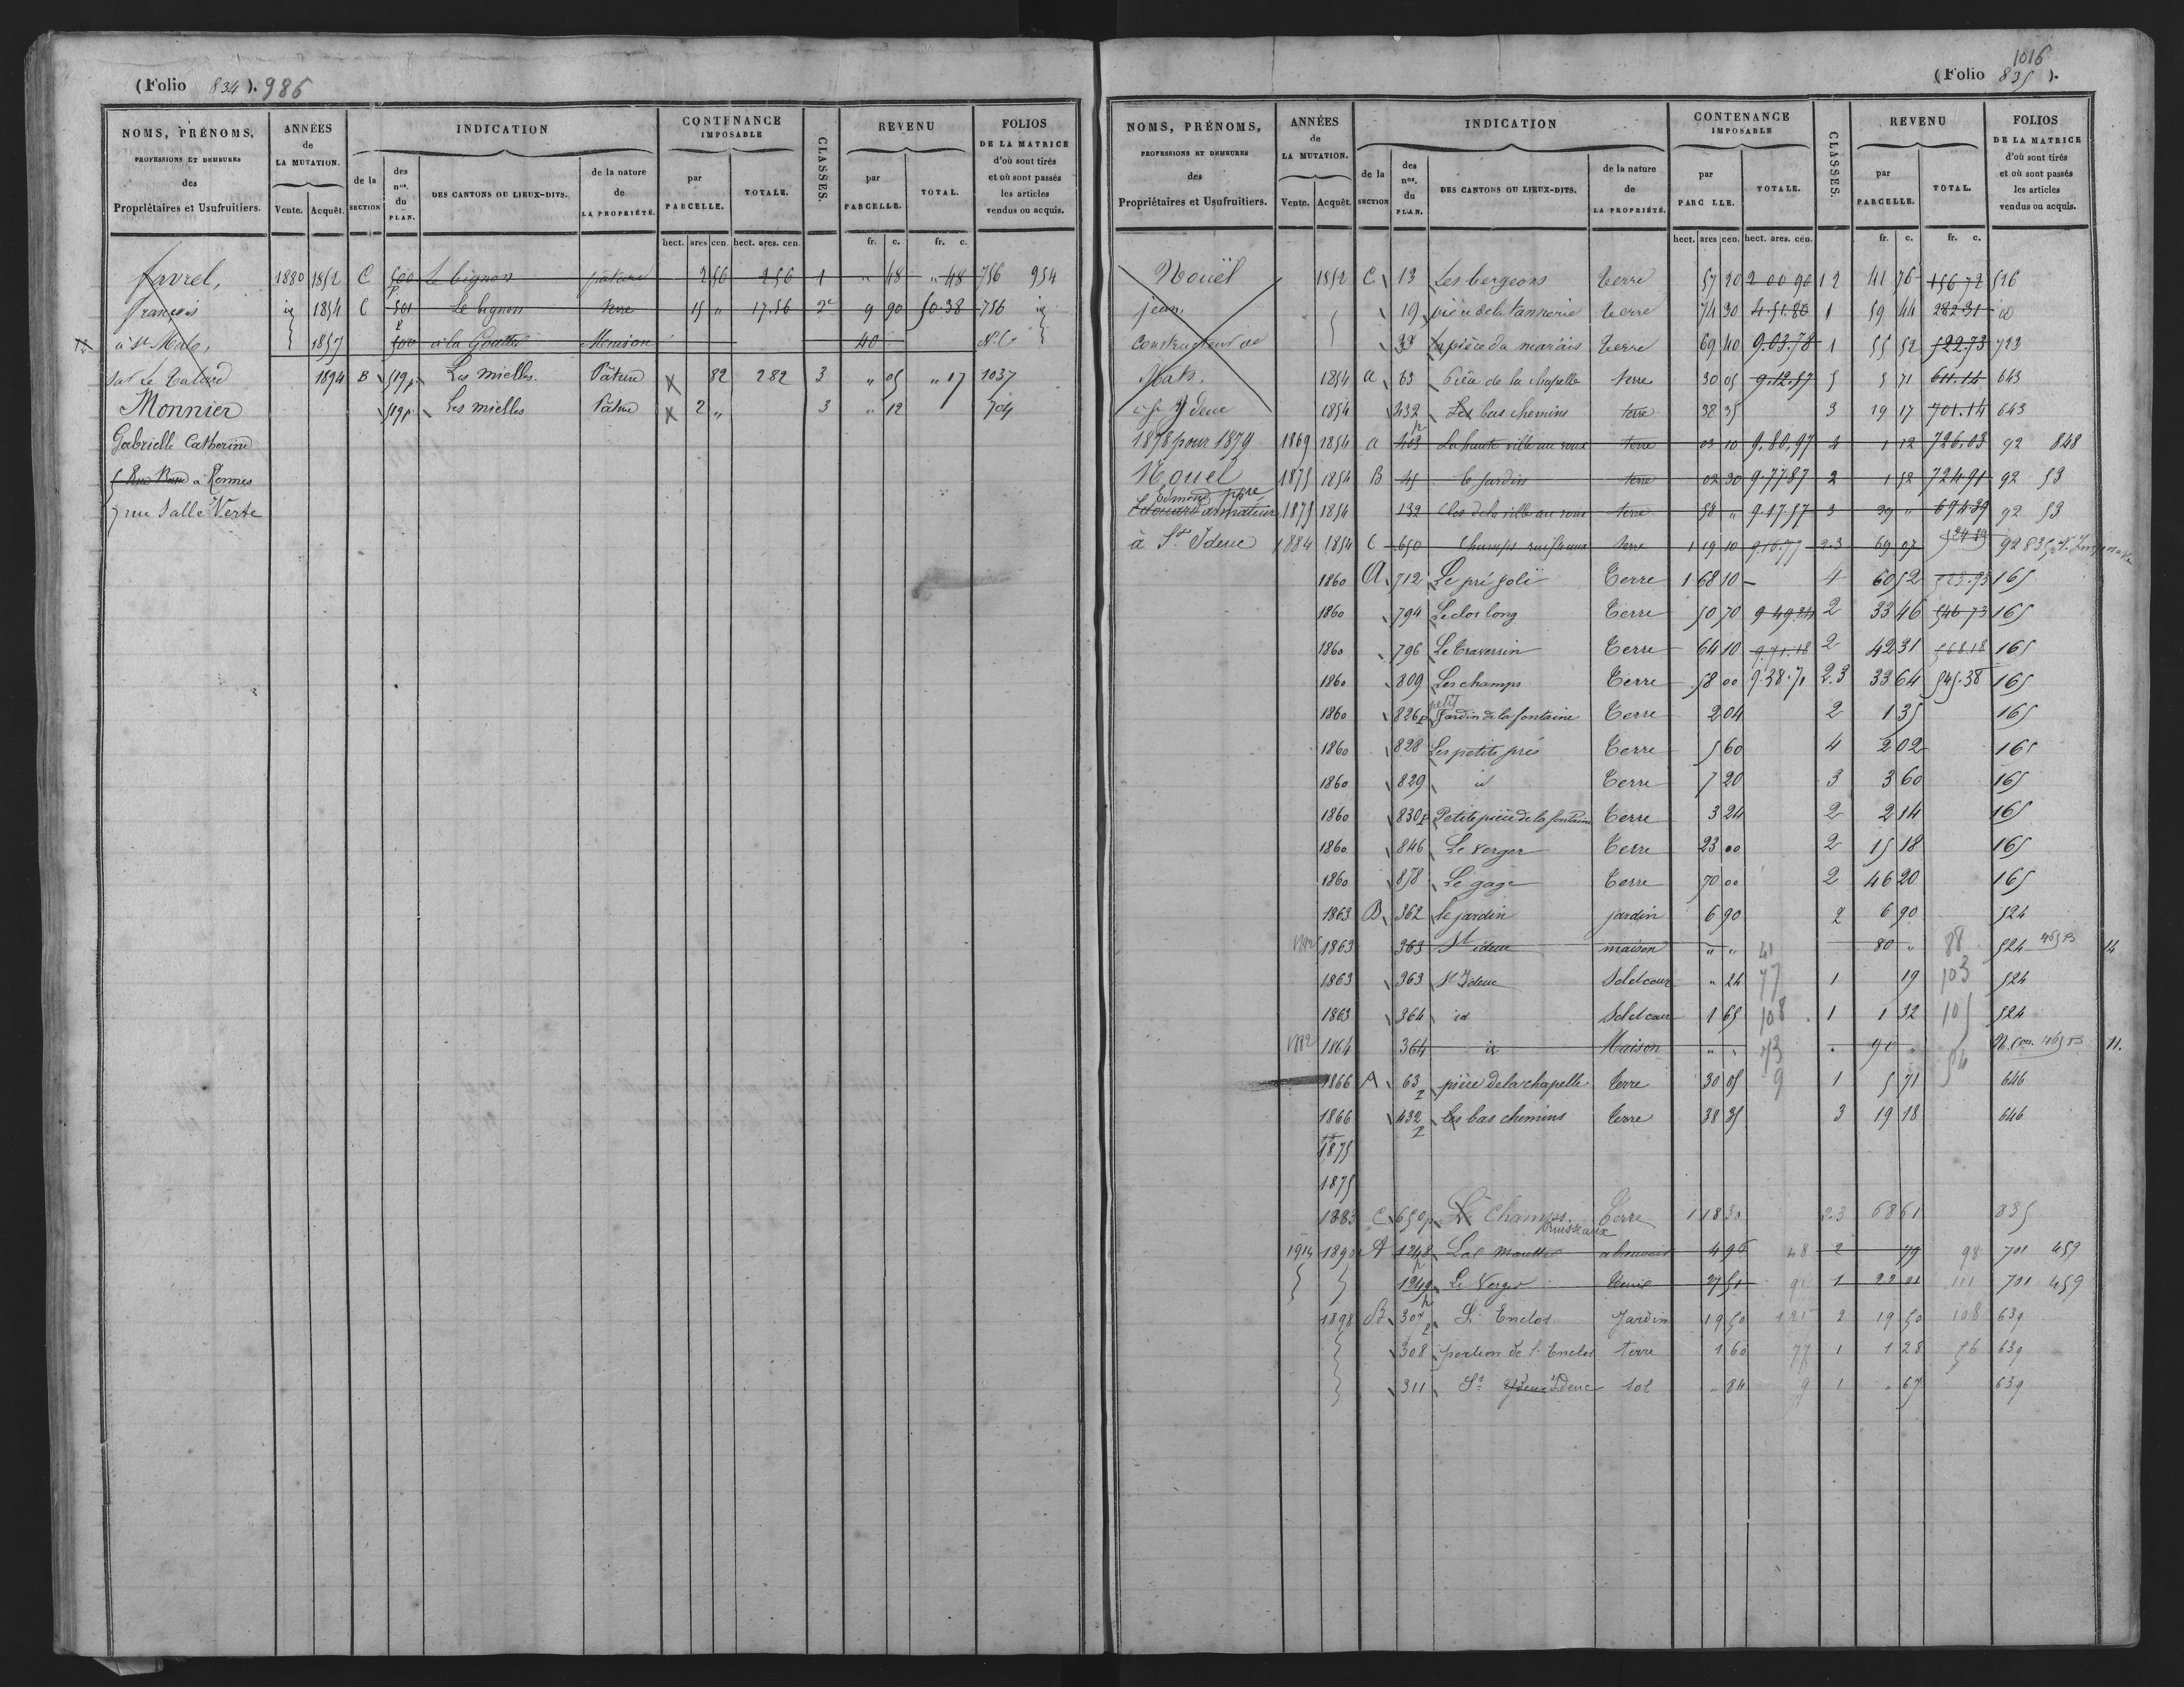 (Folio 834). 986
NOMS, PRÉNOMS, PROFESSIONS ET DEMEURES des Propriétaires et Usufruitiers.
ANNÉES de LA MUTATION. Vente. Acquêt.
INDICATION
de la SECTION
des nos. du PLAN.
DES CANTONS OU LIEUX-DITS.
de la nature de LA PROPRIÉTÉ.
CONTENANCE IMPOSABLE
par PARCELLE. TOTALE.
CLASSES.
REVENU
par PARCELLE. TOTAL.
FOLIOS DE LA MATRICE d'où sont tirés et où sont passés les articles vendus ou acquis.
hect. ares cen. hect. ares. cen. fr. c. fr. c.
favrel, 1880 1852 C 500 p le bignon pature 2 56 256 1 " 48 " 48 756 954
françois id 1854 C 501 p le bignon terre 15 " 17.56 2e 9 90 50.38 756 id
à St Malo, 1857 500 à la Goutte Maison 40 N.C
1894 B 519p Les mielles. Pâture 82 2 82 3 " 05 " 17 1037
Monnier 519p Les mielles Pâture 2 " 3 " 12 704
Gabrielle Catherine
à Rennes
7 rue Salle Verte
1016
(Folio 835).
NOMS, PRÉNOMS, PROFESSIONS ET DEMEURES des Propriétaires et Usufruitiers.
ANNÉES de LA MUTATION. Vente. Acquêt.
INDICATION
de la SECTION
des nos. du PLAN.
DES CANTONS OU LIEUX-DITS.
de la nature de LA PROPRIÉTÉ.
CONTENANCE IMPOSABLE
par PARC LLE. TOTALE.
CLASSES.
REVENU
par PARCELLE. TOTAL.
FOLIOS DE LA MATRICE d'où sont tirés et où sont passés les articles vendus ou acquis.
hect. ares cen. hect. ares. cen. fr. c. fr. c.
Nouël 1852 C 13 Les bergeons terre 57 20 2 00 90 1 2 41 76 156 72 526
jean. 19 pièce de la tannerie terre 74 30 4.51.80 1 59 44 282.31 id
constructeur de 33 la pièce du marais terre 69 40 9.03.78 1 55 52 522.73 723
Mats. 1854 a 63 pièce de la chapelle terre 30 05 9.12.57 5 5 71 611.14 643
à St Ydeuc 1854 432 p Les bas chemins terre 38 35 3 19 17 701.14 643
1878 pour 1879 1869 1854 a 403 La haute ville au roux terre 03 10 9.80.97 4 1 12 726.03 92 848
Nouel 1875 1854 B 45 le Jardin terre 02 30 9.77.87 2 1 52 724.91 92 53
Edmond ppre
Edouard armateur 1875 1854 132 clos de la ville au roux terre 58 " 9.17.57 3 29 " 694.39 92 53
à St Ideuc 1884 1854 C 650 Champs ruisseaux terre 1 19 10 2.3 69 07 92 835
1860 A 712 Le pré joli Terre 1 68 10 4 60 52 165
1860 794 Le clos long Terre 50 70 9 49 24 2 33 46 546 73 165
1860 796 Le Traversin Terre 64 10 9.71.18 2 42 31 568 18 165
1860 809 Les champs Terre 58 00 9.38.71 2.3 33 64 545.38 165
1860 826p petit Jardin de la fontaine Terre 2 04 2 1 35 165
1860 828 Les petits prés Terre 5 60 4 2 02 165
1860 829 id Terre 7 20 3 3 60 165
1860 830p Petite pièce de la fontaine Terre 3 24 2 2 14 165
1860 846 Le verger Terre 23 00 2 15 18 165
1860 878 Le gage Terre 70 00 2 46 20 165
1863 B 362 le jardin jardin 6 90 2 6 90 524
1882 1863 363 St ideuc maison " " 41 80 " 88 524 465 B 14
1863 363 St Ideuc Sol et cour " 24 77 1 19 103 524
1863 364 id Sol et cour 1 65 108 1 1 32 105 524
1882 1864 364 id Maison " " 73 " 90 " N. Con. 465 B 11.
1866 A 63 p pièce de la chapelle terre 30 05 9 1 5 71 54 646
1866 432 p les bas chemins terre 38 35 3 19 18 646
1875
1875
1883 C 650p Le Champs Ruisseaux Terre 1 18 30 2.3 68 61 835
1914 1890 A 1248 p abreuvoir 4 96 48 2 79 98 701 459
1249 p Le Verger 27 51 91 1 22 01 111 701 459
1898 B 307 p L'Enclos Jardin 19 50 125 2 19 50 108 639
308 portion de l'Enclos terre 1 60 77 1 1 28 56 639
311 St Ydeuc Ideuc sol " 84 9 1 " 67 639